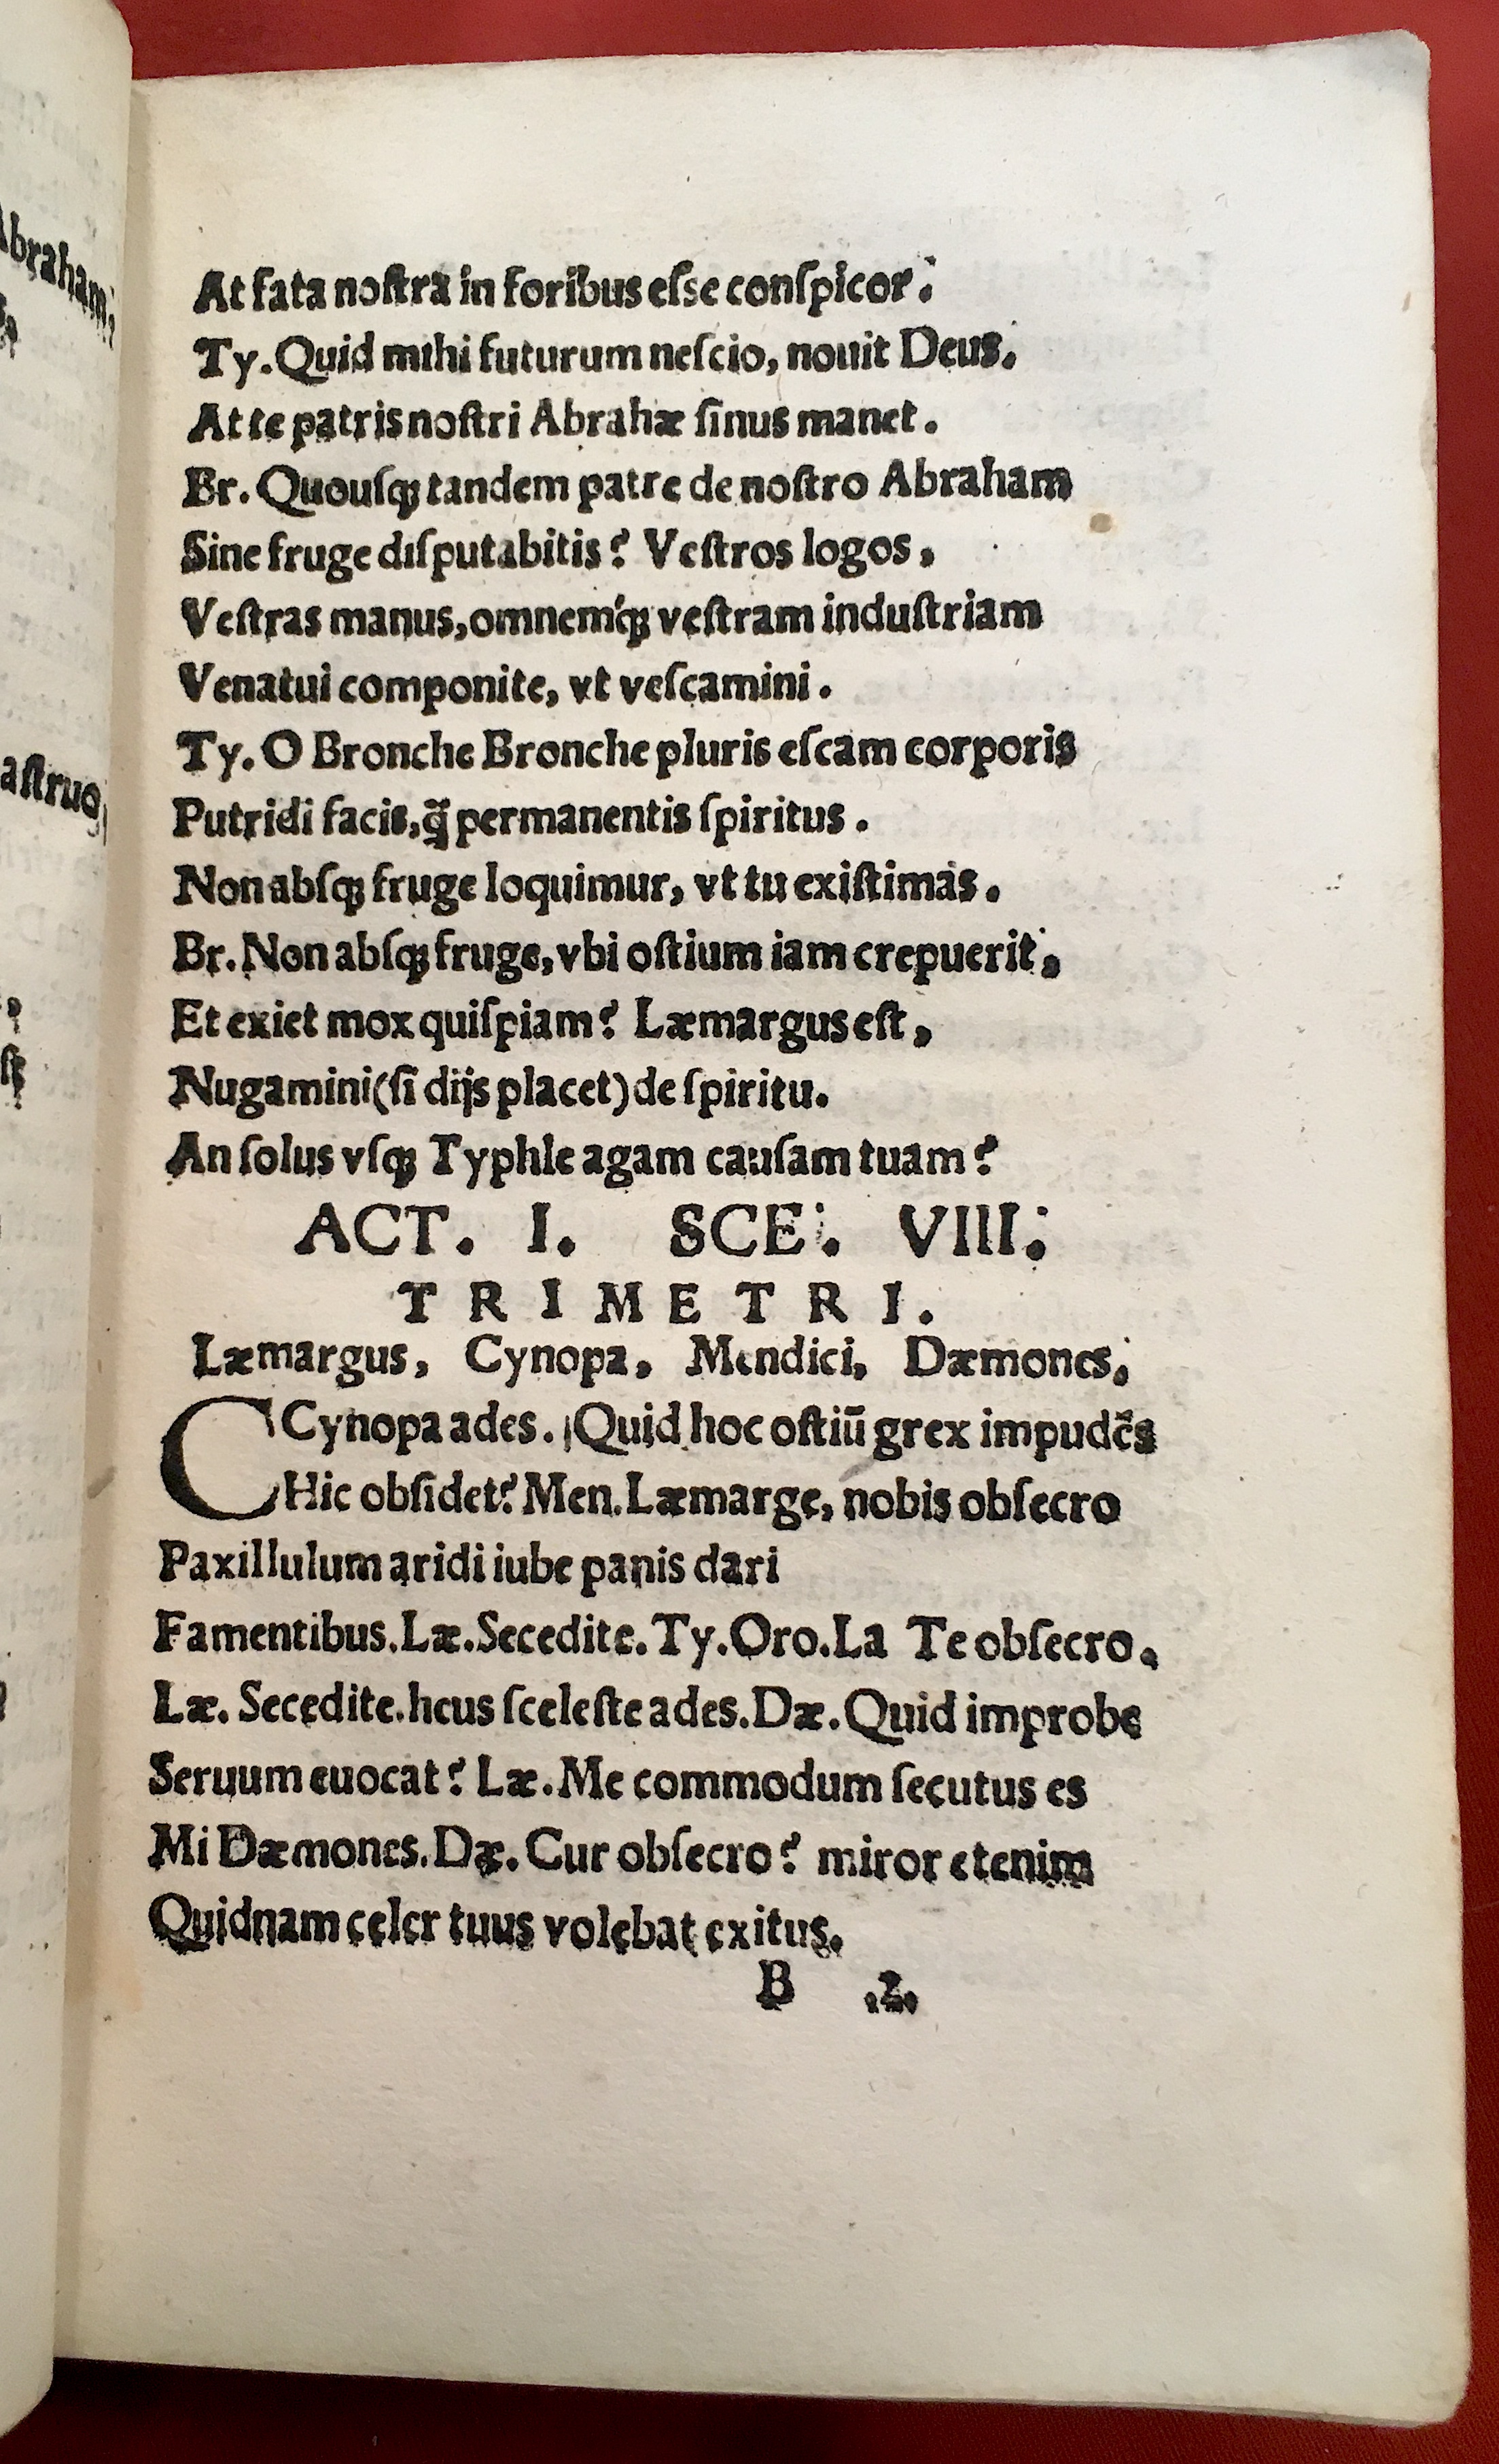 Abraham,
astruo,
At fata nostra in foribus eſse conſpicor.
Ty. Quid mihi futurum neſcio, nouit Deus.
At te patris noſtri Abrahæ ſinus manet.
Br. Quouſqꝫ tandem patre de noſtro Abraham
Sine fruge diſputabitis? Veſtros logos,
Veſtras manus, omnem'qꝫ veſtram induſtriam
Venatui componite, vt veſcamini.
Ty. O Bronche Bronche pluris eſcam corporis
Putridi facis, q̃ permanentis ſpiritus.
Non abſqꝫ fruge loquimur, vt tu exiſtimas.
Br. Non abſqꝫ fruge, vbi oſtium iam crepuerit,
Et exiet mox quiſpiam? Læmargus eſt,
Nugamini (ſi dijs placet) de ſpiritu.
An ſolus vſqꝫ Typhle agam cauſam tuam?
ACT. I. SCE. VIII.
TRIMETRI.
Læmargus, Cynopa, Mendici, Dæmones.
CCynopa ades. Quid hoc oſtiū grex impudẽs
Hic obſidet? Men. Læmarge, nobis obſecro
Paxillulum aridi iube panis dari
Famentibus. Læ. Secedite. Ty. Oro. La Te obſecro.
Læ. Secedite. heus ſceleſte ades. Dæ. Quid improbe
Seruum euocat? Læ. Me commodum ſecutus es
Mi Dæmones. Dæ. Cur obſecro? miror etenim
Quidnam celer tuus volebat exitus.
B .2.